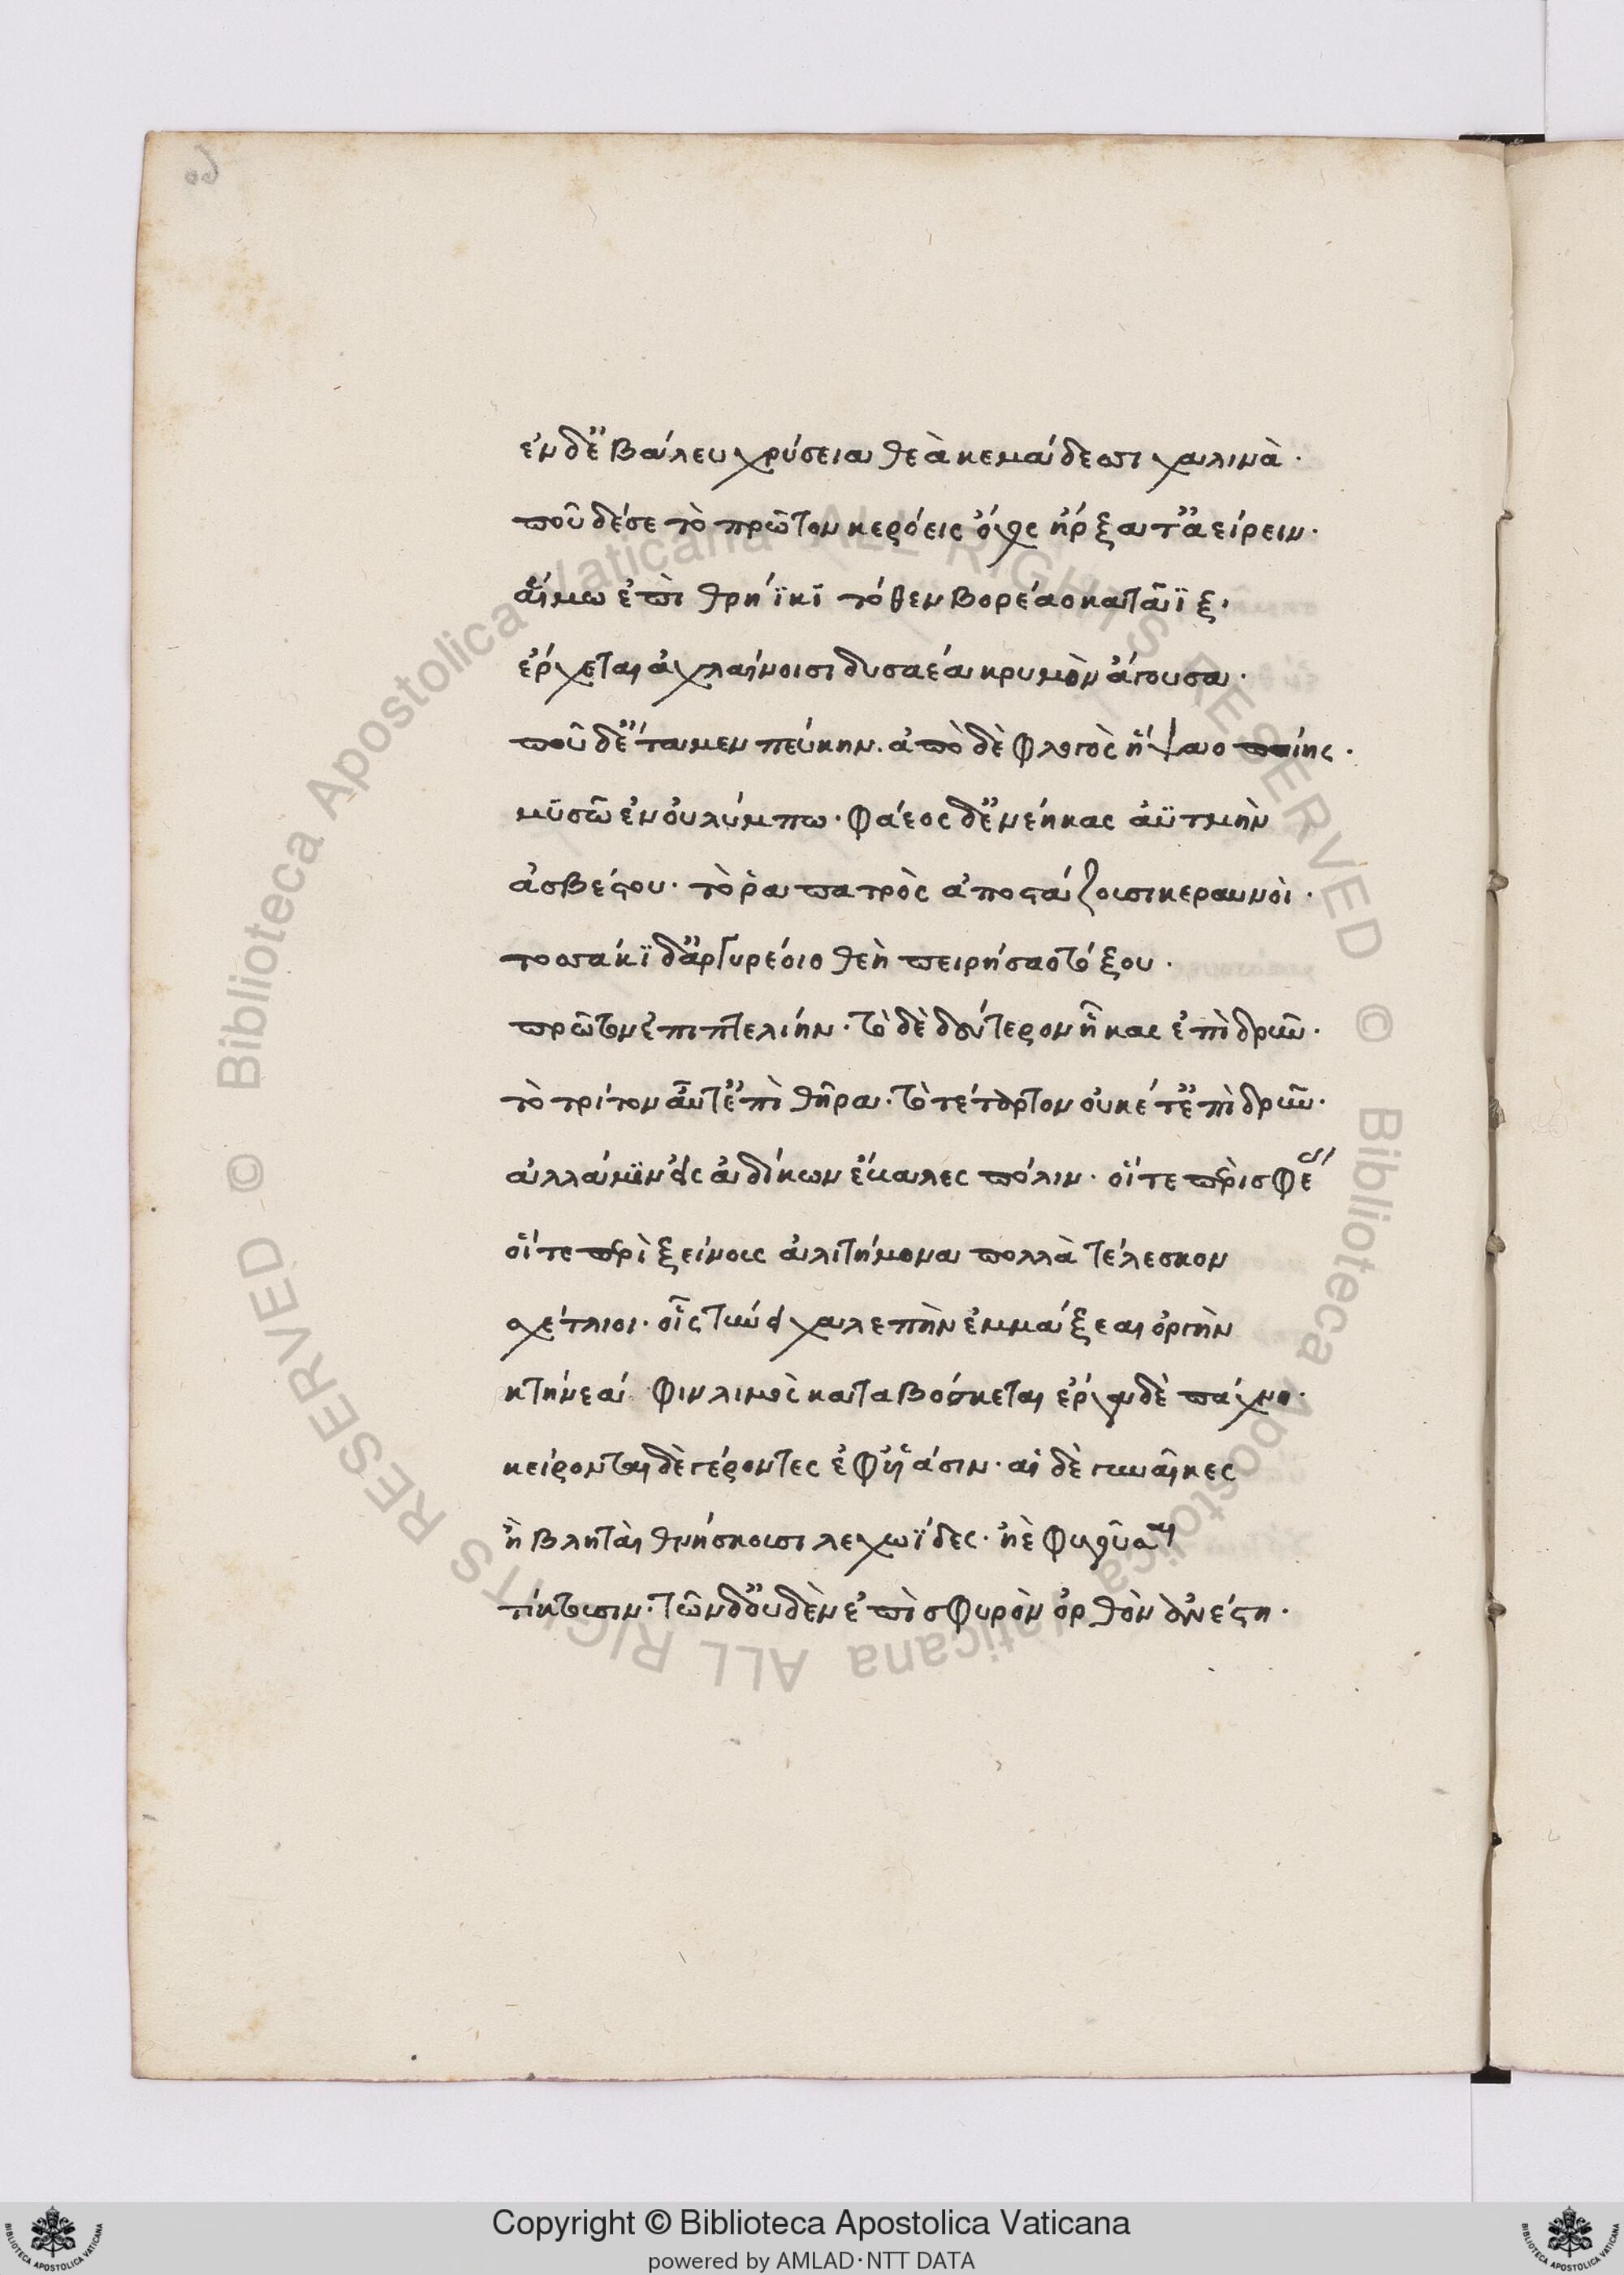 ἐν δ' ἐβάλευ χρύσεια θεὰ κεμάδεσσι χαλινὰ·
ποῦ δέ σε τὸ πρῶτον κερόεις ὄχος ἤρξατ' ἀείρειν·
αἵμω ἐπὶ θρήϊκϊ τόθεν βορέαο καταῖϊξ·
ἔρχεται ἀχλαίνοισι δυσαέα κρυμὸν ἄγουσα·
ποῦ δ' ἔταμεν πεύκην· ἀπὸ δὲ φλογὸς ἥψαο ποίης·
μϋσῶ ἐν οὐλύμπω· φάεος δ' ἐνέηκας ἀϋτμὴν
ἀσβέστου· τὸ ῥα πατρὸς ἀποστάζουσι κεραυνοὶ·
τοσσάκϊ δ' ἀργυρέοιο θεὴ πειρήσαο τόξου·
πρῶτον ἐπι πτελιήν· τὸ δὲ δεύτερον ἧκας ἐπὶ δρῦν·
τὸ τρίτον αὖτ' ἐπὶ θῆρα· τὸ τέταρτον οὐκέτ' ἐπὶ δρῦν·
ἀλλά μϊν εἰς ἀδίκων ἔκαλες πόλιν· οἵ τε περὶ σφέας
οἵ τε περὶ ξείνους ἀλιτήμονα πολλὰ τέλεσκον
σχέτλιοι· οἷς τύνη χαλεπὴν ἐμμάξεαι ὀργὴν
κτήνεά φιν λιμὸς καταβόσκεται ἔργα δὲ πάχνη·
κείρονται δὲ γέροντες ἐφ' υἱάσιν· αἱ δὲ γυναῖκες
ἢ βληταὶ θνήσκουσι λεχωΐδες· ἠὲ φυγοῦσαι
τίκτουσιν· τῶν δ' οὐδὲν ἐπὶ σφυρὸν ὀρθὸν ἀνέστη·
Copyright © Biblioteca Apostolica Vaticana
powered by AMLAD·NTT DATA